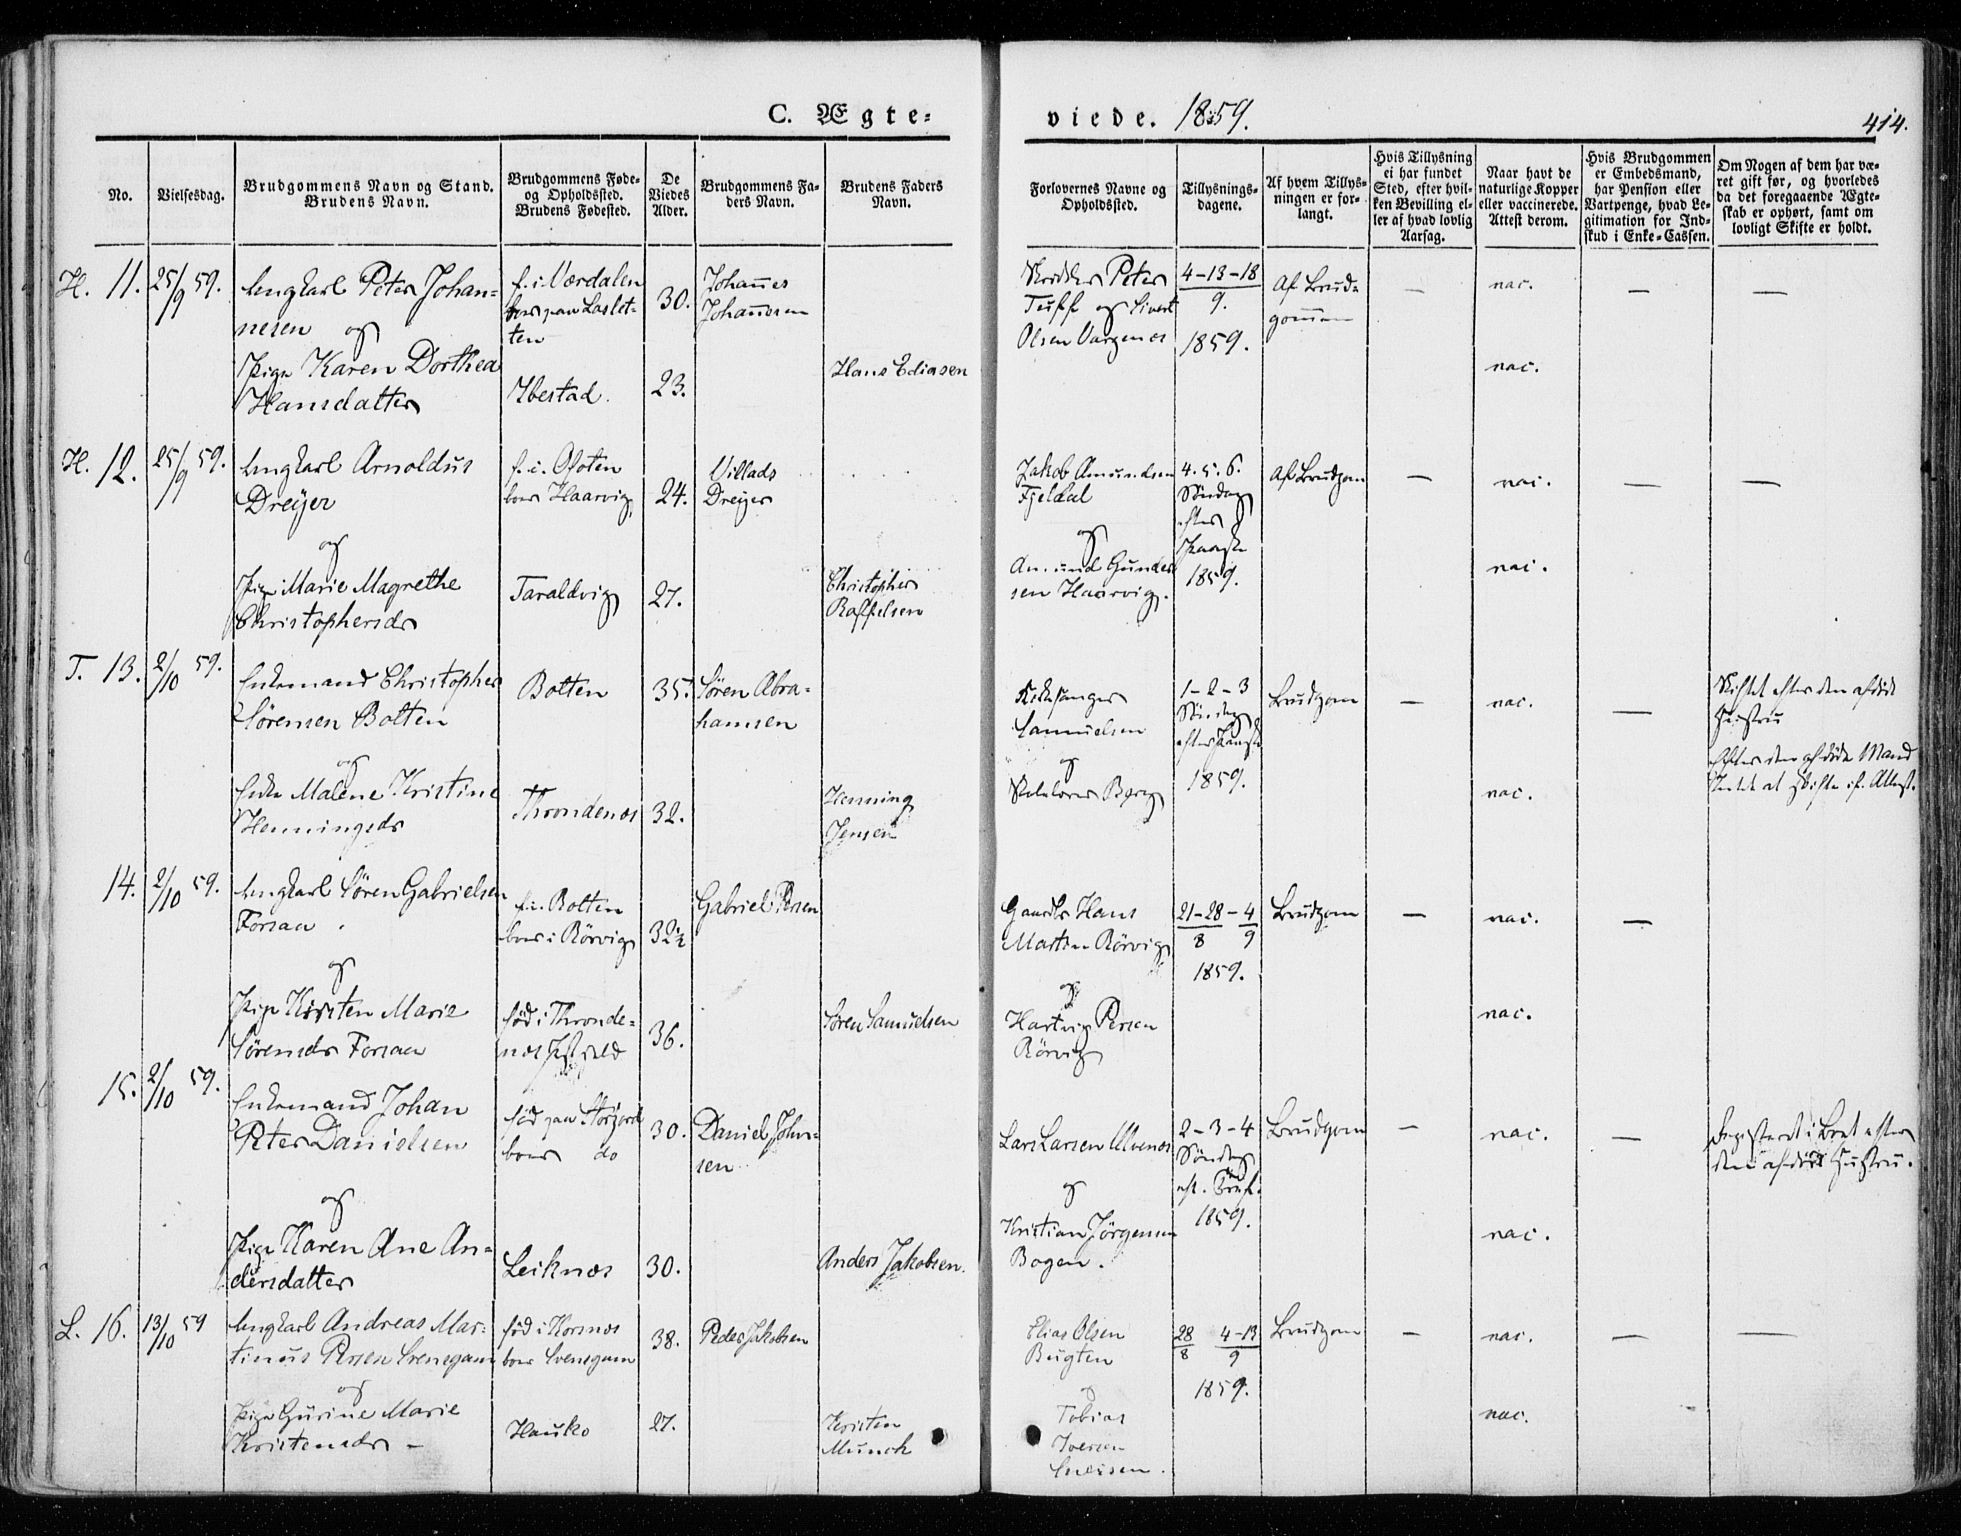 C. Ægte-
viede. 1859.
414.
No.
Vielsesdag.
Brudgommens Navn og Stand.
Brudens Navn.
Brudgommens Føde-
og Opholdssted.
Brudens Fødested.
De
Viedes
Alder.
Brudgommens Fa-
ders Navn.
Brudens Faders
Navn.
Forlovernes Navne og
Opholdssted.
Tillysnings-
dagene.
Af hvem Tillys-
ningen er for-
langt.
Hvis Tillysning
ei har fundet
Sted, efter hvil-
ken Bevilling el-
ler af hvad lovlig
Aarsag.
Naar havt de
naturlige Kopper
eller vaccinerede.
Attest derom.
Hvis Brudgommen
er Embedsmand,
har Pension eller
Vartpenge, hvad Le-
gitimation for Ind-
skud i Enke-Cassen.
Om Nogen af dem har væ-
ret gift før, og hvorledes
da det foregaaende Ægte-
skab er ophørt, samt om
lovligt Skifte er holdt.
H. 11. 25/9 59.
Ungkarl Peter Johan-
nesen og
Pige Karen Dorthea
Hansdatter
f. i Værdalen
boer paa
ten
Ibestad.
30.
23.
Johannes
Johannesen
Hans Ediasen
Peter
og Sivert
Olsen
4-13-18
9.
1859.
Af Brud-
gommen
—
nac.
nac.
—
—
H. 12. 25/9 59.
Ungkarl Arnoldus
Dreyer
og
Pige Marie Magrethe
Christophersdr
f. i. Ofoten
boer Haarvig
Taraldvig
24.
27.
Villads
Dreyer
Christopher
Raffelsen
Jakob Amundsen
Fjeldal
og
Amund Gunder
sen Haarvig.
4. 5. 6.
Søndag
efter
Paaske
1859.
Af Brudgom
—
nac.
nac.
—
—
T. 13. 2/10 59.
Enkemand Christopher
Sørensen Bolten
og
Enke Malene Kristine
Henningsdr
Bolten
Throndenes
35.
32.
Søren Abra-
hamsen
Henning
Jensen
Kirkesanger
Samuelsen
og
Skolelærer Berg
1-2-3
Søndag
efter Paaske
1859.
Brudgom
—
nac.
nac.
—
Skiftet efter den afdøde
Hustru
Efter den afdøde Mand
Intet at skifte if. Attest.
14. 2/10 59.
Ungkarl Søren Gabrielsen
Forsaa.
og
Pige Kirsten Marie
Sørensdr Forsaa
f. i. Bolten
boer i Rörvig
född i Thronde-
nes
32½
36.
Gabriel Persen
Søren Samuelsen
Gaardbr Hans
Martin Rörvig
og
Hartvig Persen
Rörvig
21-28-4
8 9
1859.
Brudgom
—
nac.
nac.
—
15. 2/10 59.
Enkemand Johan
Peter Danielsen
og
Pige Karen Ane An-
dersdatter
fød paa Storjord
boer do
Leiknes
30.
30.
Daniel John-
sen
Anders Jakobsen.
Lars Larsen Ulvenes
og
Kristian Jörgensen
Bogen.
2-3-4
Søndag
eft. Trinit.
1859.
Brudgom
—
nac.
nac.
—
Registeret i Boet efter
den afdøde Hustru.
L. 16. 13/10 59
Ungkarl Andreas Mar-
tinus Persen Svensgam
og
Pige Gurine Marie
Kristensdr -
fød i Hornes
boer Svensgam
Hauko
38.
27.
Peder Jakobsen
Kristen
Munch
Elias Olsen
Bugten
og
Tobias
Iversen
28 4-13
8 9
1859.
Brudgom
—
nac.
nac.
—
—